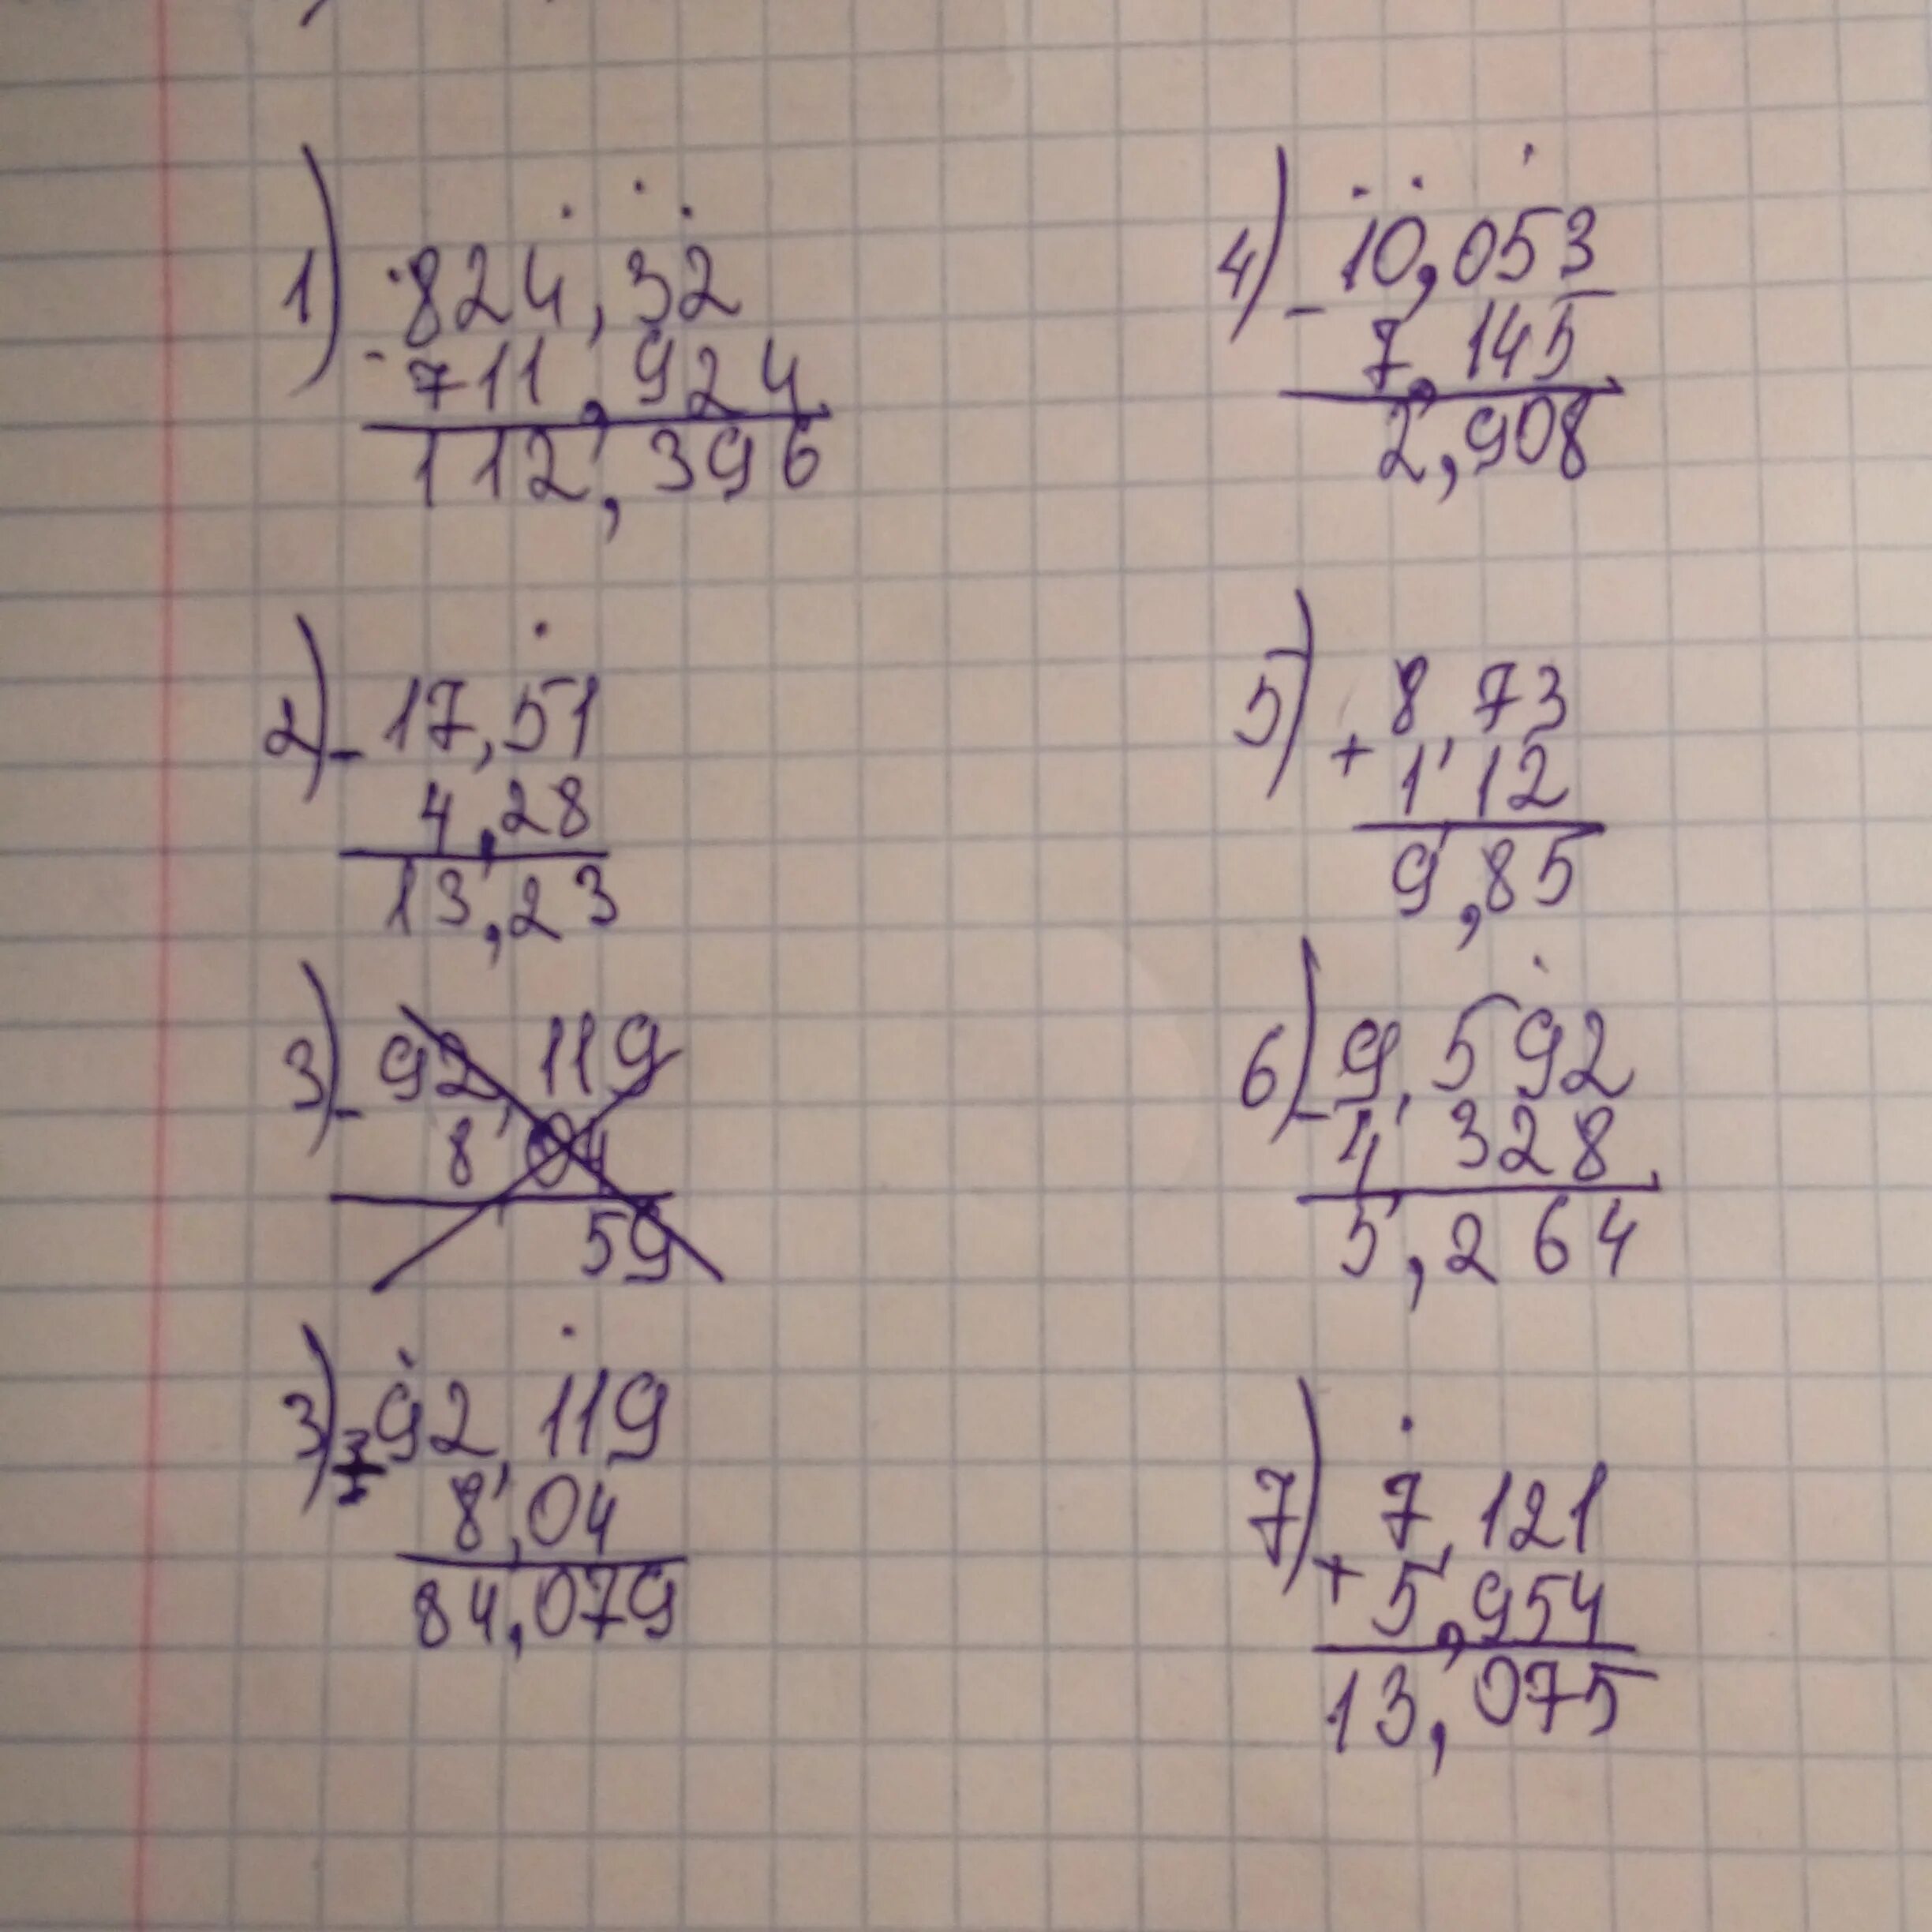 1) 824,32
- 711,924
112,396
2) - 17,51
4,28
13,23
3) - 92,119
8,04
59
3) - 92,119
8,04
84,079
4) - 10,053
7,145
2,908
5) + 8,73
1,12
9,85
6) - 9,592
4,328
5,264
7) + 7,121
5,954
13,075